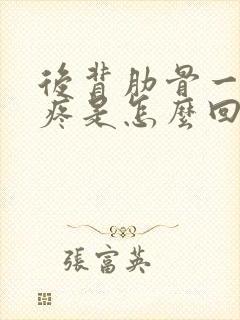 後背肋骨一
疼是怎麼回
張富英